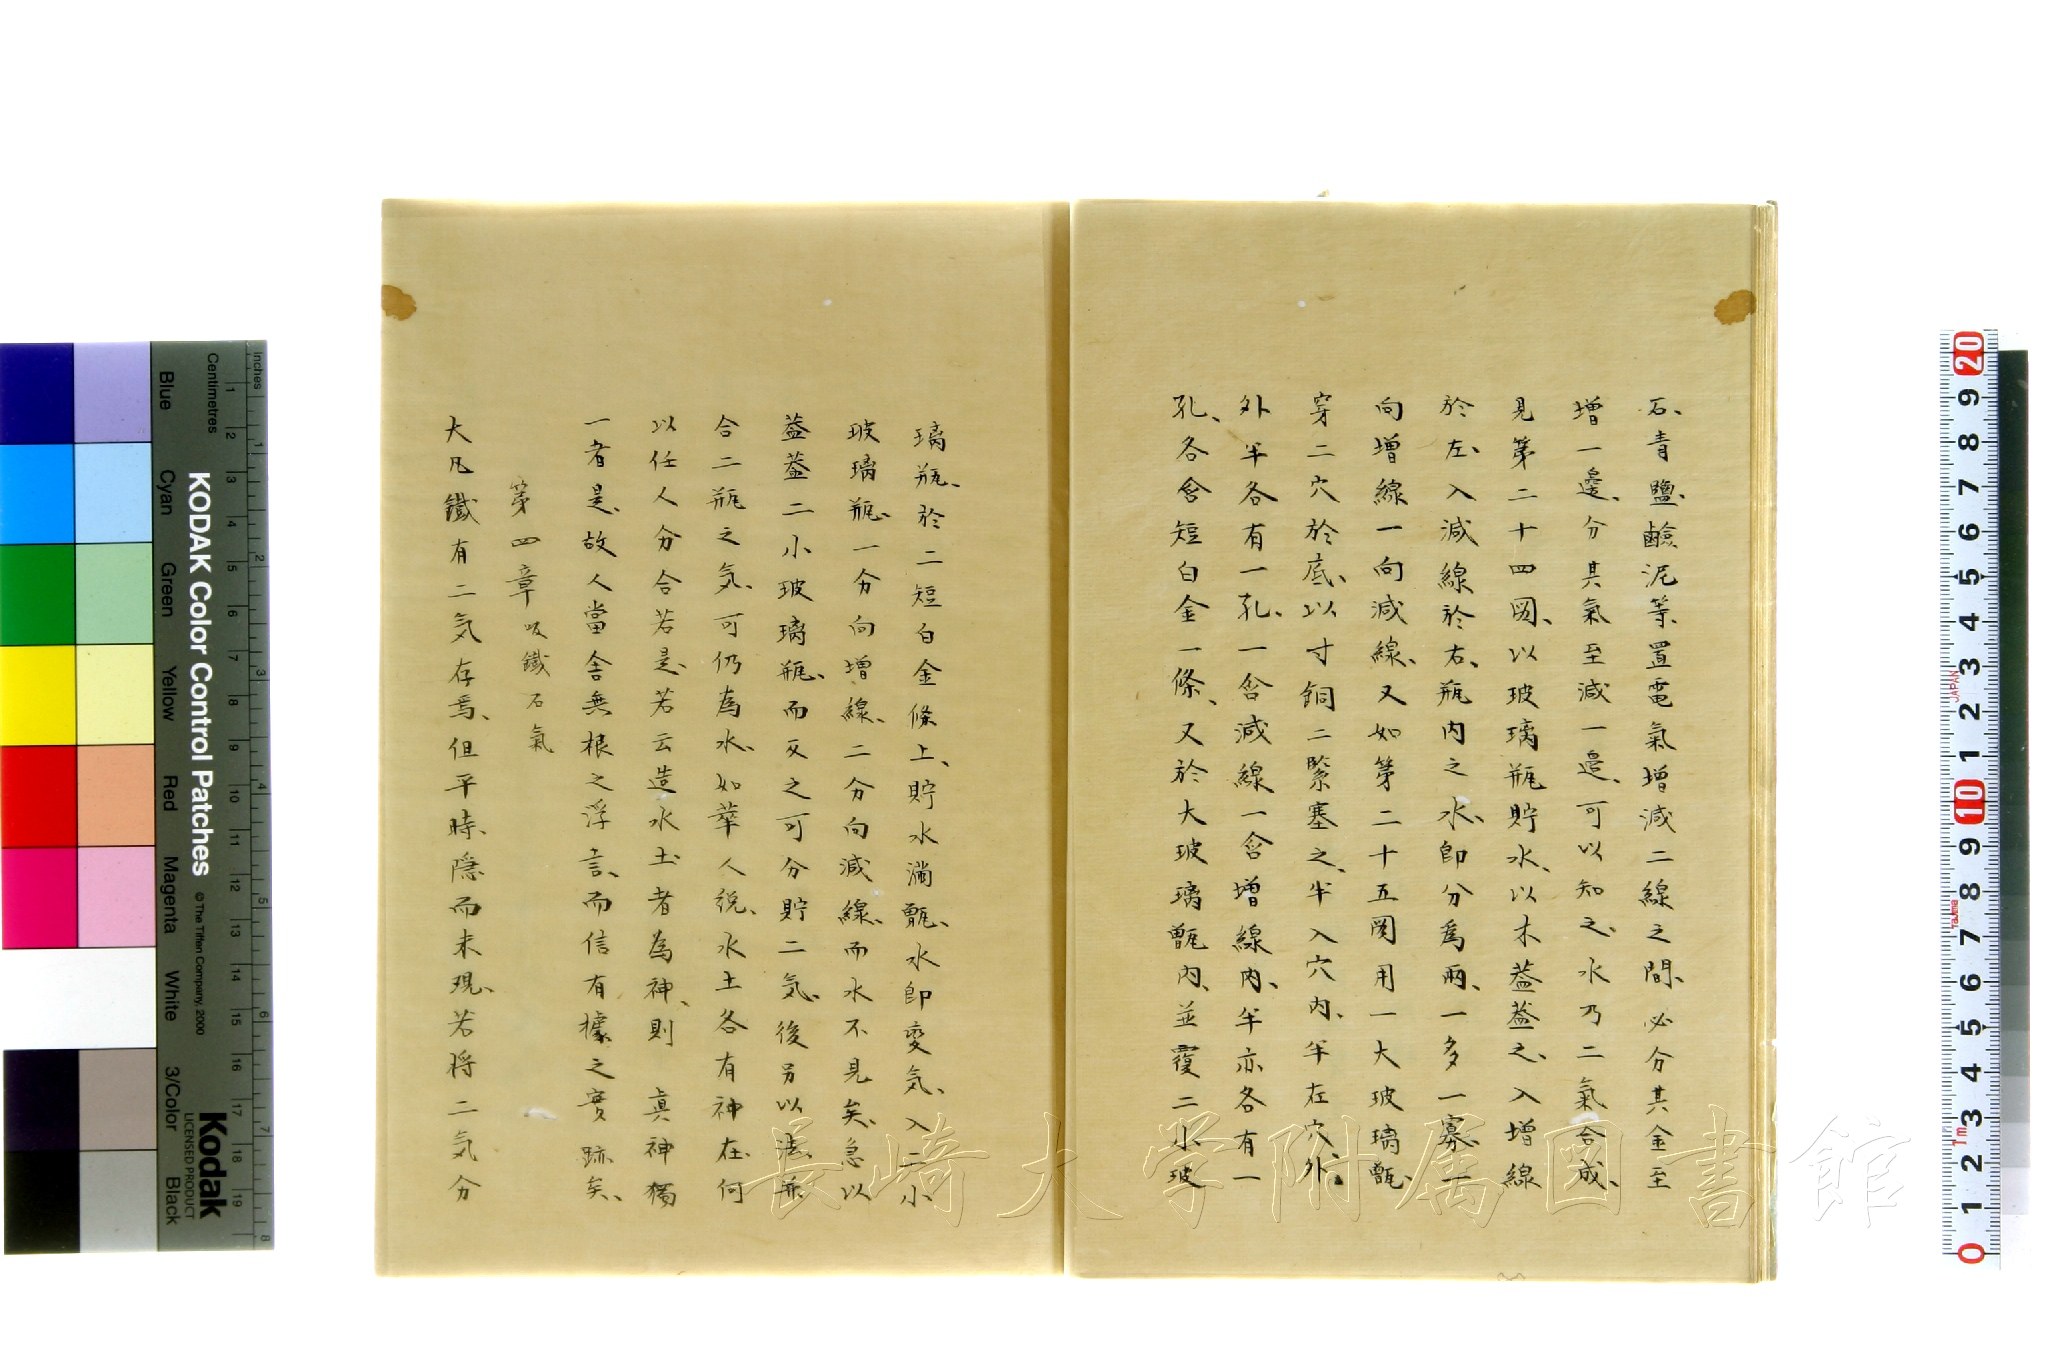 石、青鹽、鹼泥等、置電氣增減二線之間、必分其金至
增一邊、分其氣至減一邊、可以知之、水乃二氣合成、
見第二十四図、以玻璃瓶貯水、以木葢葢之、入增線
於左、入減線於右、瓶内之水、即分爲兩、一多一寡、一
向增線一向減線、又如第二十五図用一大玻璃甑、
穿二穴於底、以寸銅二緊塞之、半入穴内、半在穴外、
外半各有一孔、一含減線一含增線、内半亦各有一
孔、各含短白金一條、又於大玻璃甑内、並覆二小玻
璃瓶、於二短白金條上、貯水満甑、水即變気、入二小
玻璃瓶、一分向增線、二分向減線、而水不見矣、急以
葢葢二小玻璃瓶、而反之可分貯二気、後另以法、兼
合二瓶之気、可仍為水、如華人説、水土各有神在、何
以任人分合若是、若云造水土者為神、則 真神獨
一者是、故人當舍無根之浮言、而信有據之實跡矣、
第四章 吸鐵石氣
大凡鐵有二気存焉、但平時、隠而未現、若将二気分
長崎大学附属図書館
KODAK Color Control Patches
© The Tiffen Company, 2000
Kodak
LICENSED PRODUCT
Inches
Centimetres
Blue
Cyan
Green
Yellow
Red
Magenta
White
3/Color
Black
1 2 3 4 5 6 7 8 9 10 11 12 13 14 15 16 17 18 19
1 2 3 4 5 6 7 8
20 9 8 7 6 5 4 3 2 1 10 9 8 7 6 5 4 3 2 1 0
JAPAN
Tajima
1m